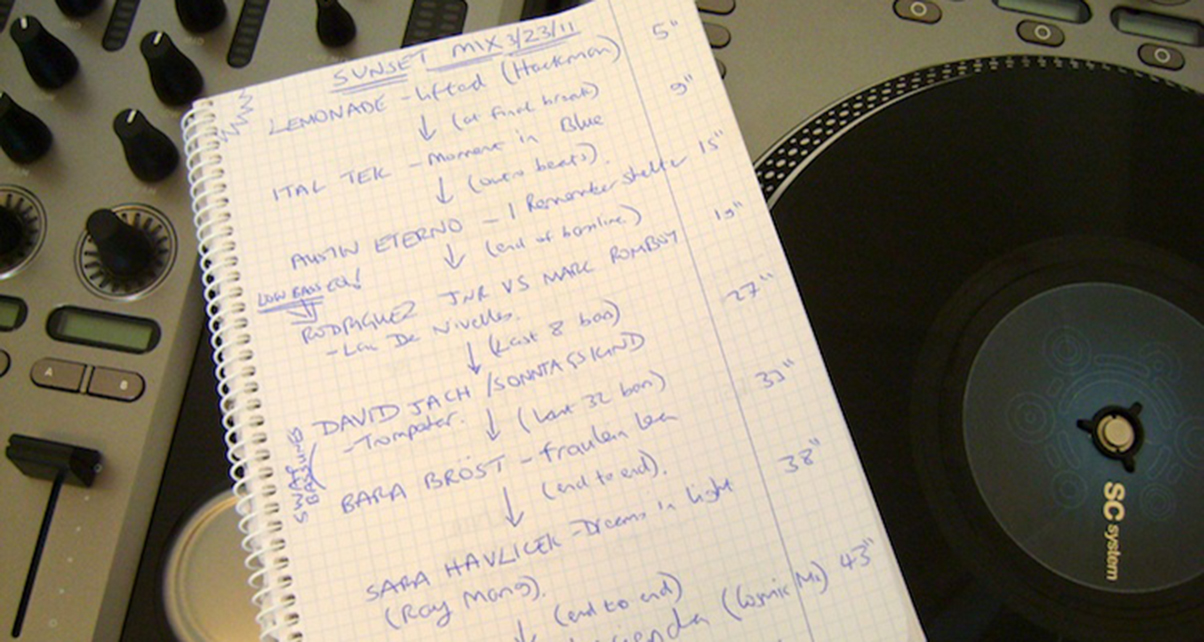 SUNSET MIX 3/23/11
LEMONADE - lifted (Hackman) 5"
↓ (at final break)
ITAL TEK - Moment in Blue 9"
↓ (outro beats).
AUSTIN ETERNO - I Remember shelter 15"
↓ (end of bassline)
LOW BASS EQ!
RODRIGUEZ JNR VS MARC ROMBOY 19"
- Lac De Nivelles.
↓ (Last 8 bars)
DAVID JACH / SONNTAGSKIND 27"
- Trompeter.
↓ (Last 32 bars)
SWAP BASSLINES
BARA BRÖST - fraulein 33"
↓ (end to end).
SARA HAVLICEK - Dreams in light 38"
(Ray Mang).
↓ (end to end)
(Cosmic M) 43"
A
B
SC system